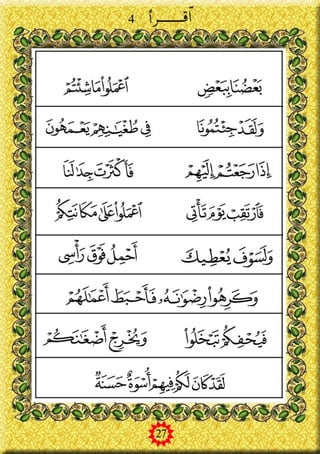 ٱقۡرَأۡ 4
بَعۡضُنَا بِبَعۡضٖ ٱعۡمَلُواْ مَا شِئۡتُمۡ
وَلَقَدۡ جِئۡتُمُونَا فِي طُغۡيَٰنِهِمۡ يَعۡمَهُونَ
إِذَا رَجَعۡتُمۡ إِلَيۡهِمۡ فَأَكۡثَرۡتَ جِدَٰلَنَا
فَٱرۡتَقِبۡ يَوۡمَ تَأۡتِي ٱعۡمَلُواْ عَلَىٰ مَكَانَتِكُمۡ
وَلَسَوۡفَ يُعۡطِيكَ أَحۡمِلُ فَوۡقَ رَأۡسِي
وَكَرِهُواْ رِضۡوَٰنَهُۥ فَأَحۡبَطَ أَعۡمَٰلَهُمۡ
فَيُحۡفِكُمۡ تَبۡخَلُواْ وَيُخۡرِجۡ أَضۡغَٰنَكُمۡ
لَقَدۡ كَانَ لَكُمۡ فِيهِمۡ أُسۡوَةٌ حَسَنَةٞ
27